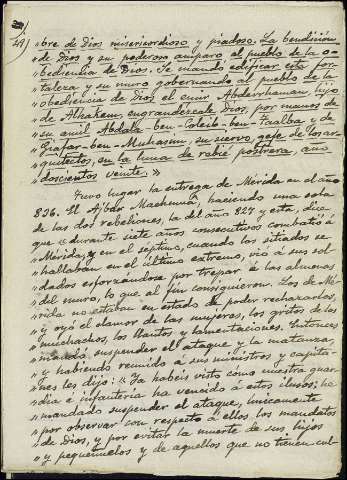 29)
"bre de Dios misericordioso y piadoso. La bendición
" de Dios y su poderoso amparo al pueblo de la o-
" bediencia de Dios. Se mandó edificar esta for-
" taleza y su muro gobernando al pueblo de la
" obediencia de Dios el emir Abderrhaman, hijo
" de Alhakem, engrandézcale Dios, por manos de
" su amil Abdala-ben-Coleib-ben-Tzalba y de
" Giafar-ben-Muhasin, su siervo, gefe de los ar-
" quitectos, en la luna de rabié postrera, año
" doscientos veinte."
Tuvo lugar la entrega de Mérida en el año
836. El Ajbar Machmuâ, haciendo una sola
de las dos rebeliones, la del año 827 y esta, dice
que "durante siete años consecutivos combatió á
" Mérida, y en el séptimo, cuando los sitiados se
" hallaban en el último extremo, vio á sus sol-
" dados esforzándose por trepar á las almenas
" del muro, lo que al fin consiguieron. Los de Mé-
" rida no estaban en estado de poder rechazarlos,
" y oyó el clamor de las mujeres, los gritos de los
" muchachos, los llantos y lamentaciones. Entonces
" mandó suspender el ataque y la matanza,
" y habiendo reunido á sus ministros y capita-
" nes les dijo: "Ya habéis visto como nuestra guar-
" dia é infantería ha vencido á estos ilusos; he
" mandado suspender el ataque, únicamente
" por observar con respecto á ellos los mandatos
" de Dios, y por evitar la muerte de sus hijos
" y pequeñuelos y de aquellos que no tienen cul-